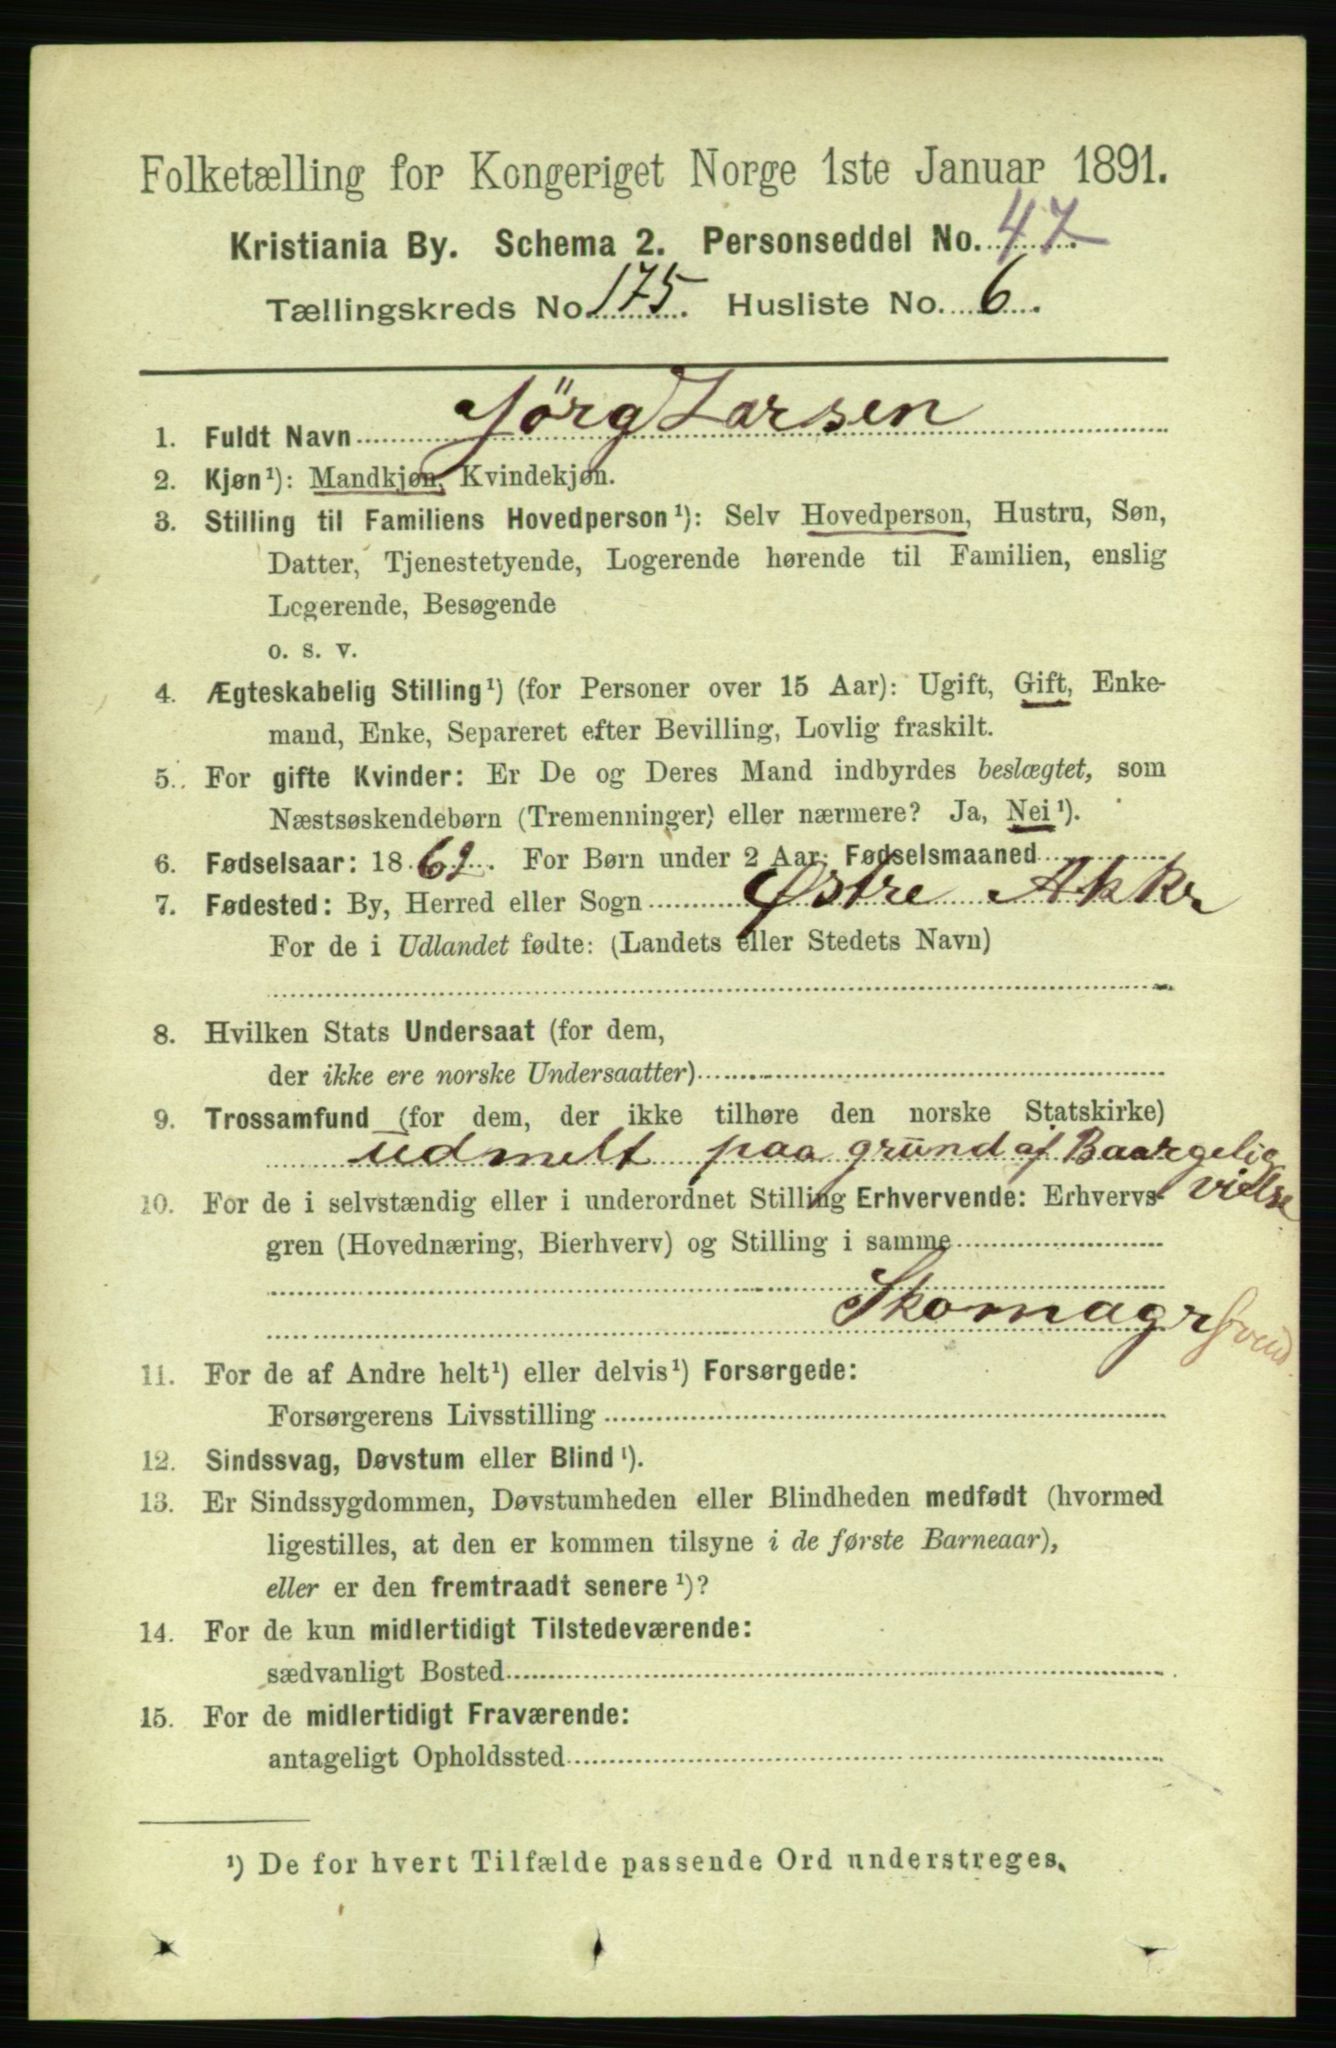 Folketælling for Kongeriget Norge 1ste Januar 1891.
Kristiania By. Schema 2. Personseddel No. 47.
Tællingskreds No 175. Husliste No. 6.
1. Fuldt Navn Jörg Larsen
2. Kjøn¹): Mandkjøn, Kvindekjøn.
3. Stilling til Familiens Hovedperson¹): Selv Hovedperson, Hustru, Søn,
Datter, Tjenestetyende, Logerende hørende til Familien, enslig
Logerende, Besøgende
o. s. v.
4. Ægteskabelig Stilling¹) (for Personer over 15 Aar): Ugift, Gift, Enke-
mand, Enke, Separeret efter Bevilling, Lovlig fraskilt.
5. For gifte Kvinder: Er De og Deres Mand indbyrdes beslægtet, som
Næstsøskendebørn (Tremenninger) eller nærmere? Ja, Nei¹).
6. Fødselsaar: 1862. For Børn under 2 Aar: Fødselsmaaned
7. Fødested: By, Herred eller Sogn Østre Akkr
For de i Udlandet fødte: (Landets eller Stedets Navn)
8. Hvilken Stats Undersaat (for dem,
der ikke ere norske Undersaatter)
9. Trossamfund (for dem, der ikke tilhøre den norske Statskirke)
udmelt paa grund af Baargelig
vielse
10. For de i selvstændig eller i underordnet Stilling Erhvervende: Erhvervs-
gren (Hovednæring, Bierhverv) og Stilling i samme
Skomagrsvend
11. For de af Andre helt¹) eller delvis¹) Forsørgede:
Forsørgerens Livsstilling
12. Sindssvag, Døvstum eller Blind¹).
13. Er Sindssygdommen, Døvstumheden eller Blindheden medfødt (hvormed
ligestilles, at den er kommen tilsyne i de første Barneaar),
eller er den fremtraadt senere¹)?
14. For de kun midlertidigt Tilstedeværende:
sædvanligt Bosted
15. For de midlertidigt Fraværende:
antageligt Opholdssted
¹) De for hvert Tilfælde passende Ord understreges.